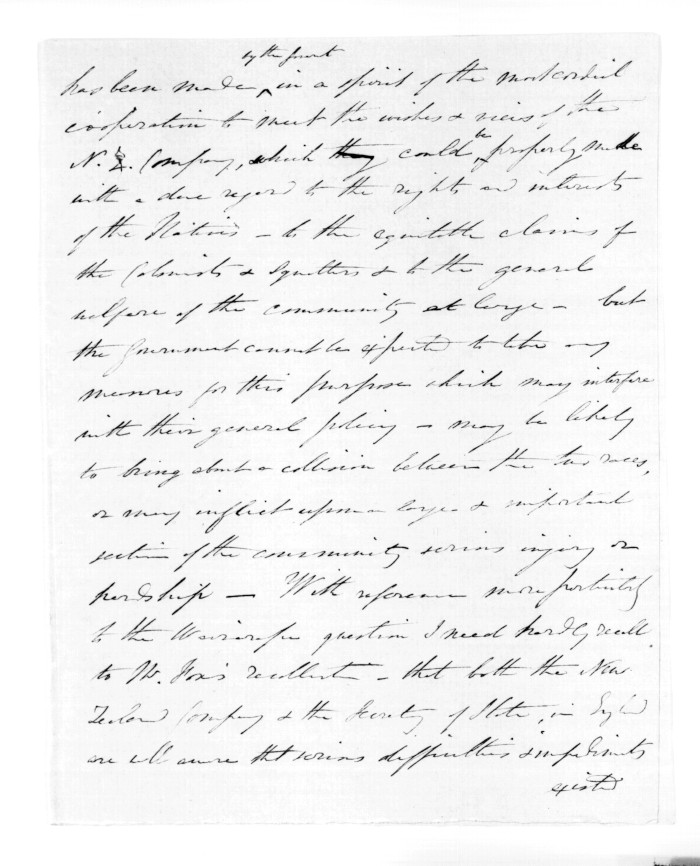 by the Govt
has been made ^ in a spirit of the most cordial
cooperation to meet the wishes & views of the
N. Z. Company, which they could be properly made
with a due regard to the rights and interests
of the Natives – to the equitable claims of
the Colonists & Squatters & to the general
welfare of the community at large – but
the Government cannot be expected to take any
measures for this purpose which may interfere
with their general policy – may be likely
to bring about a collision between the two races,
or may inflict upon a large & important
section of the community serious injury or
hardship – With reference more particularly
to the Wairarapa question I need hardly recall
to Mr. Fox's recollection – that both the New
Zealand Company & the Secretary of State, in England
are well aware that serious difficulties & impediments
existed